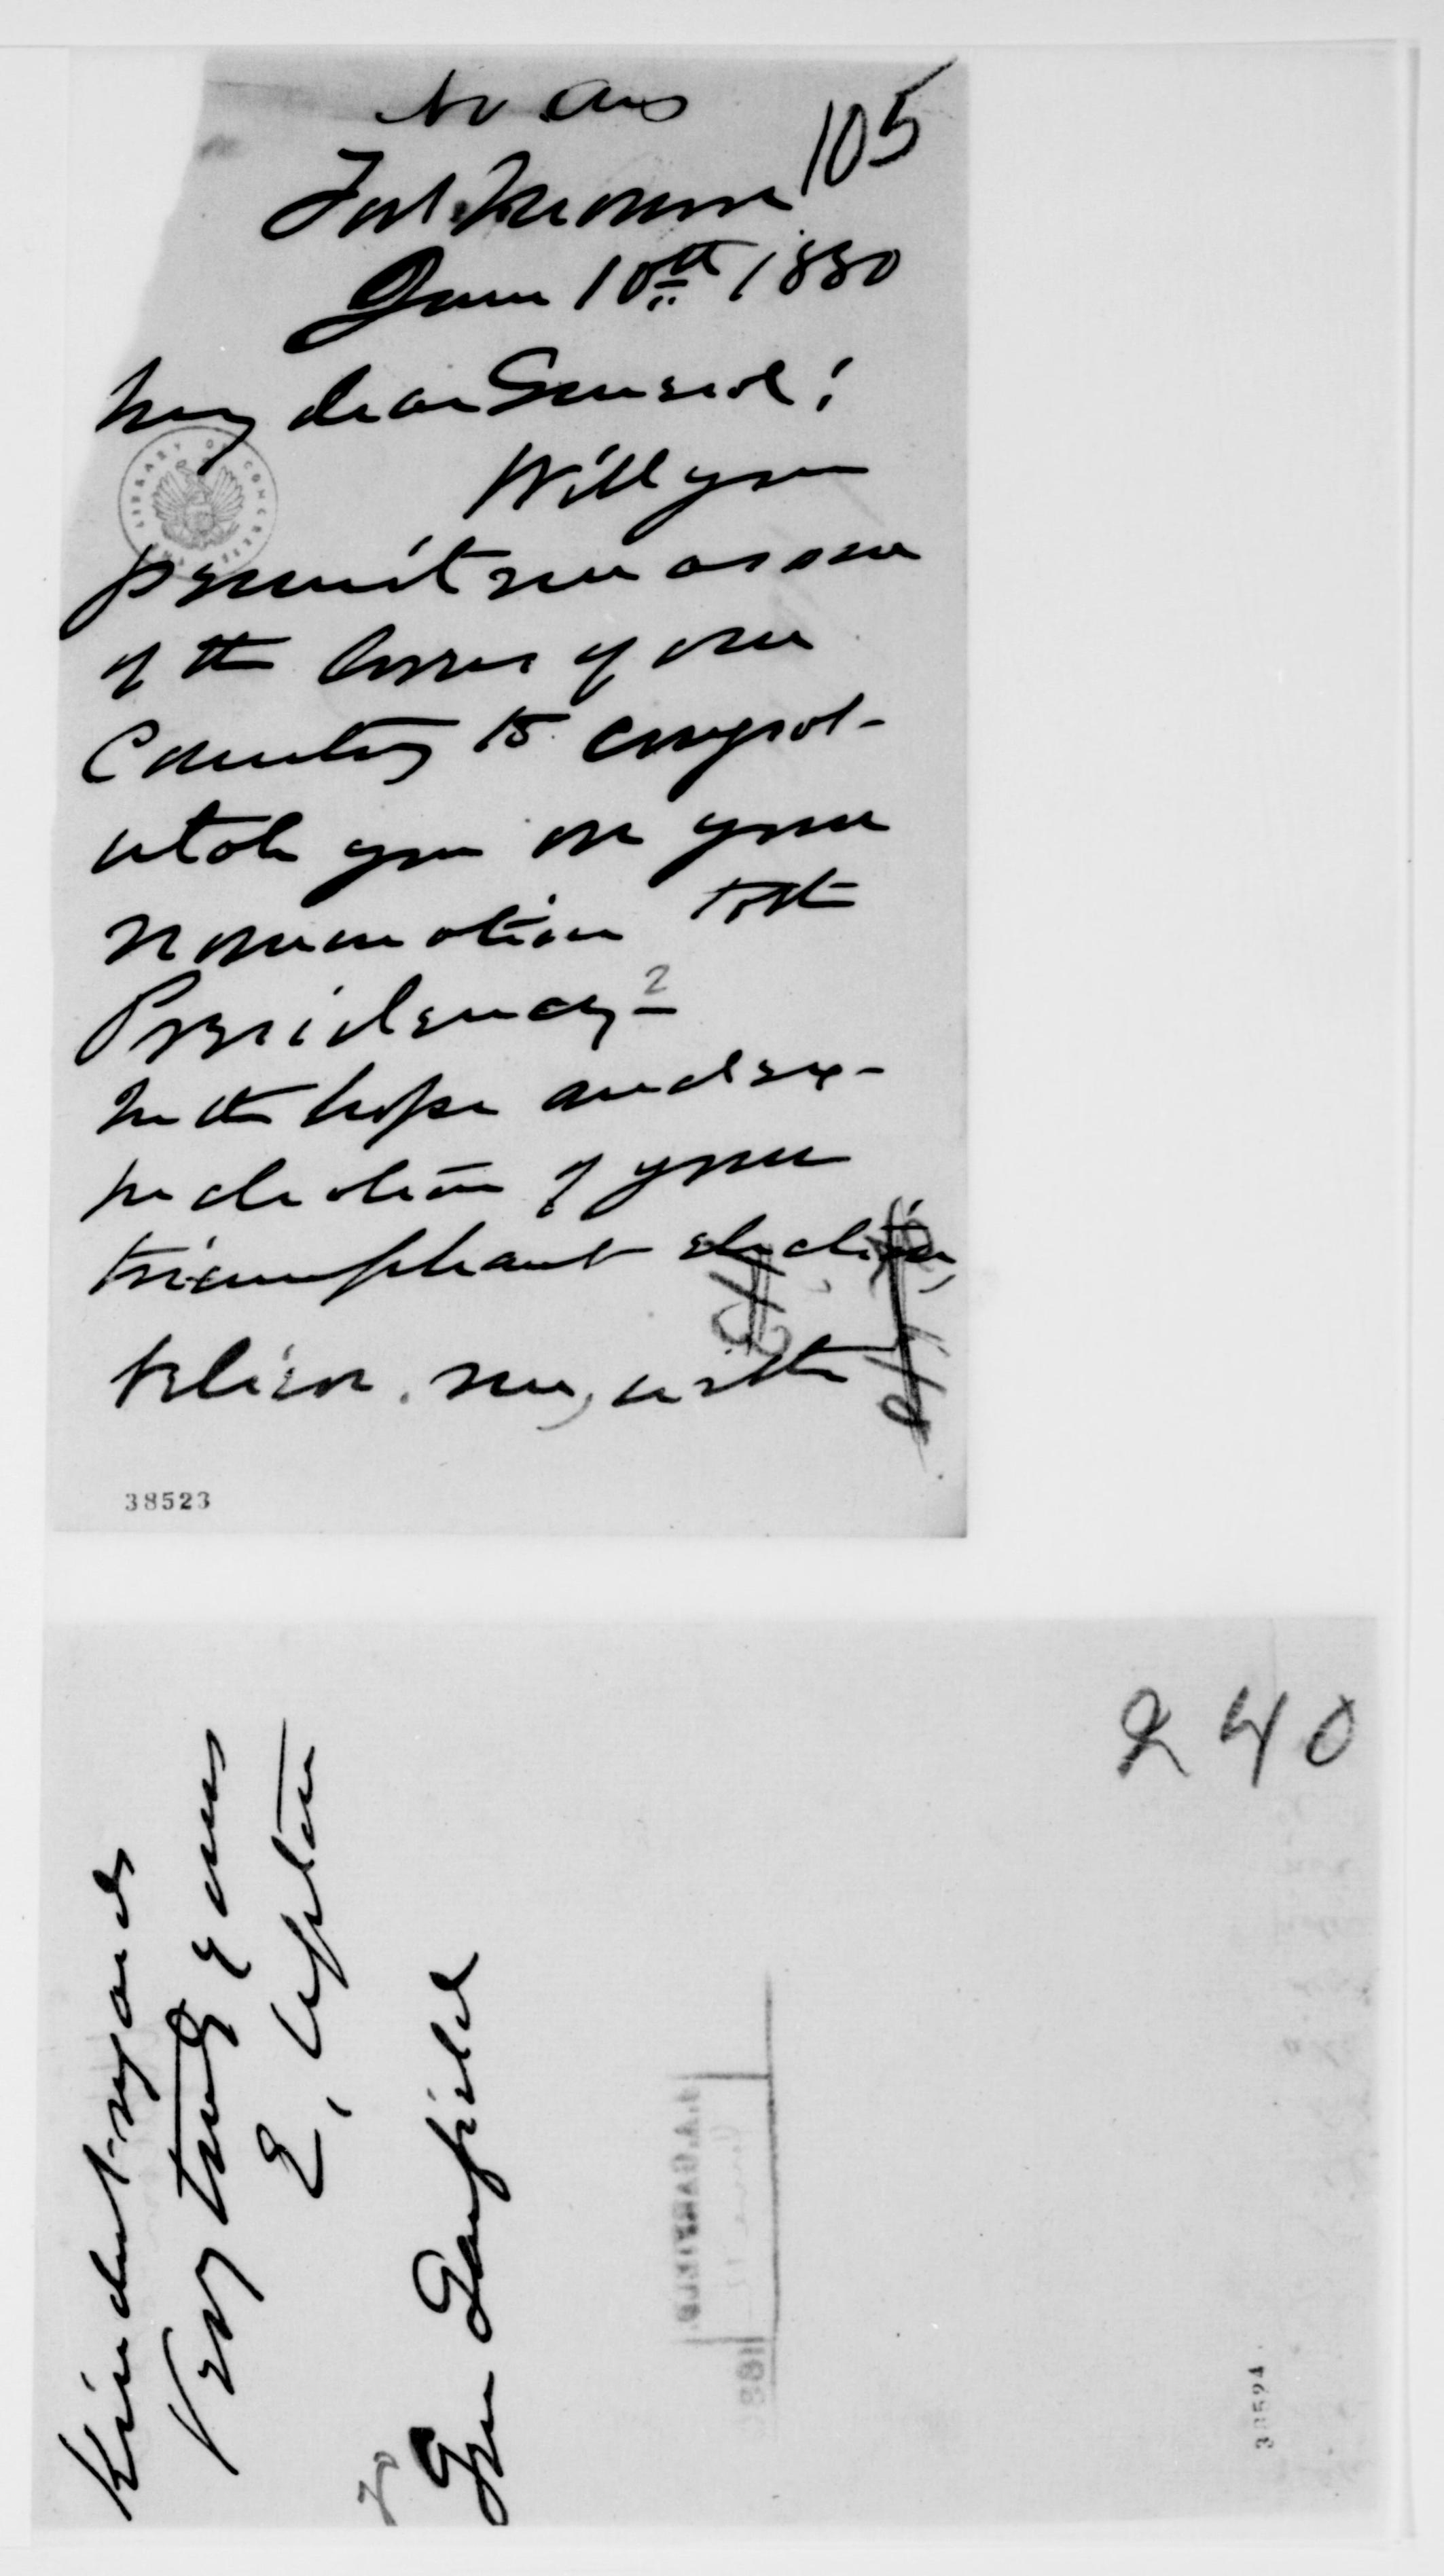 No Ans
105
Fort Monroe
June 10th 1880
My dear General;
Will you
permit me as one
of the
of our
Country to congrat-
ulate you on your
nomination to the
Presidency -
2
In the hope and ex-
pectation of your
triumphant election,
believe me, with
38523
240
Kindest regards
Very truly yours
E. Upton
Gen Garfield
J.A. GARFIELD.
188
38524